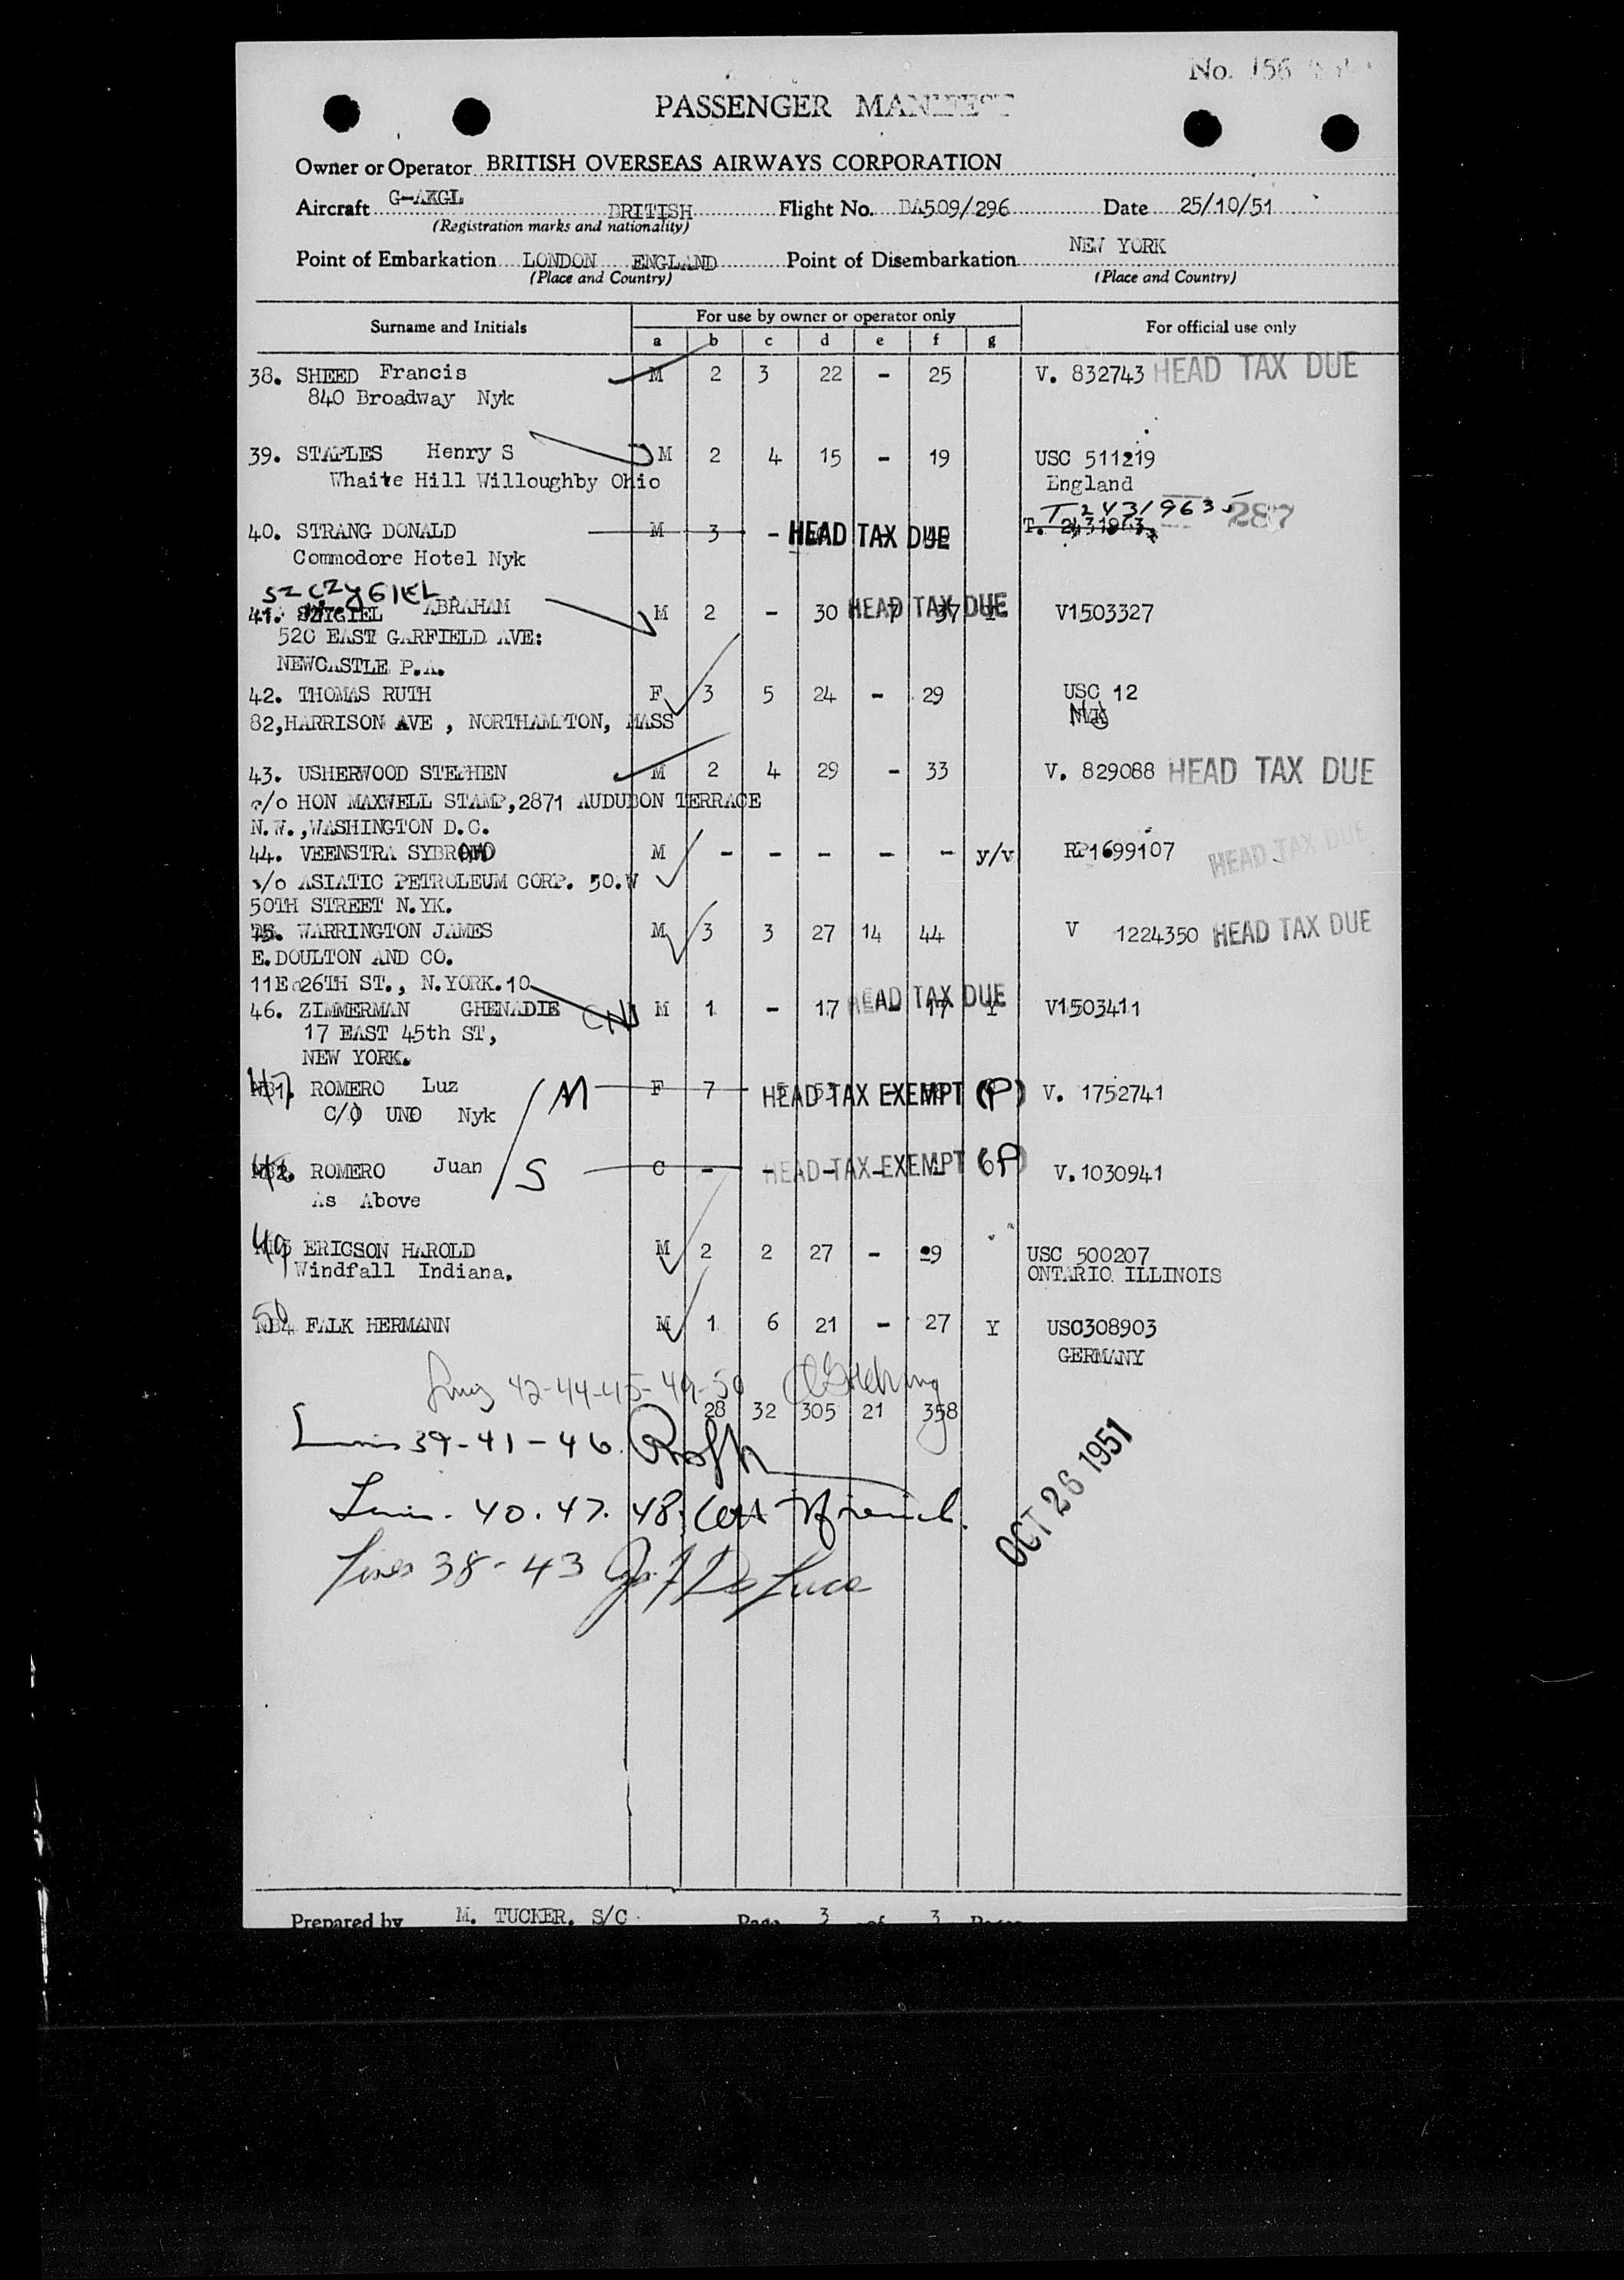 No. 156
PASSENGER MANIFEST
Owner or Operator BRITISH OVERSEAS AIRWAYS CORPORATION
Aircraft G-AKGL BRITISH Flight No. BA509/296 Date 25/10/51
(Registration marks and nationality)
Point of Embarkation LONDON ENGLAND Point of Disembarkation NEW YORK
(Place and Country) (Place and Country)
Surname and Initials For use by owner or operator only For official use only
a b c d e f g
38. SHEED Francis M 2 3 22 - 25 V. 832743 HEAD TAX DUE
840 Broadway Nyk
39. STAPLES Henry S M 2 4 15 - 19 USC 511219
Whaite Hill Willoughby Ohio England
T 2431963
40. STRANG DONALD M 3 - HEAD TAX DUE T. 2431963 287
Commodore Hotel Nyk
SZCZYGIEL
41. ABRAHAM M 2 - 30 7 37 HEAD TAX DUE V1503327
520 EAST GARFIELD AVE:
NEWCASTLE P.A.
42. THOMAS RUTH F 3 5 24 - 29 USC 12
82,HARRISON AVE , NORTHAMPTON, MASS
43. USHERWOOD STEPHEN M 2 4 29 - 33 V. 829088 HEAD TAX DUE
c/o HON MAXWELL STAMP,2871 AUDUBON TERRACE
N.W.,WASHINGTON D.C.
44. VEENSTRA M - - - - - y/v RP1699107 HEAD TAX DUE
c/o ASIATIC PETROLEUM CORP. 50.W
50TH STREET N.YK.
45. WARRINGTON JAMES M 3 3 27 14 44 V 1224350 HEAD TAX DUE
E.DOULTON AND CO.
11E 26TH ST., N.YORK.10
46. ZIMMERMAN GHENADIE M 1 - 17 - 17 Y HEAD TAX DUE V1503411
17 EAST 45th ST,
NEW YORK.
47. ROMERO Luz M F 7 HEAD TAX EXEMPT (P) V. 1752741
C/O UNO Nyk
48. ROMERO Juan S C - - - - - HEAD TAX EXEMPT 6P) V.1030941
As Above
49 ERICSON HAROLD M 2 2 27 - 29 USC 500207
Windfall Indiana. ONTARIO ILLINOIS
50 FALK HERMANN M 1 6 21 - 27 Y USC308903
GERMANY
42-44-45-49-50
28 32 305 21 358
39-41-46
40. 47. 48.
OCT 26 1951
Lines 38-43
Prepared by M. TUCKER. S/C Page 3 of 3 Pages